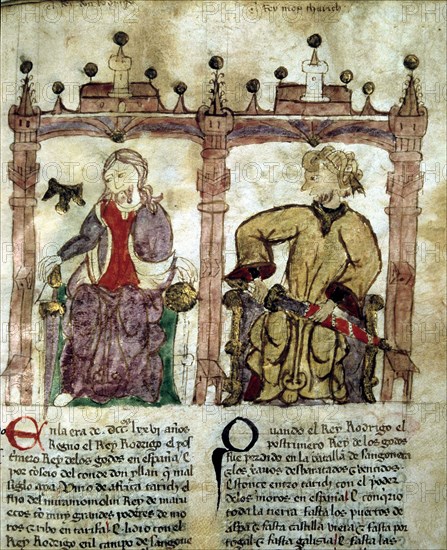 Rodrigo
Rey
Enla era de lxxvi años
Regno el Rey Rodrigo el pos
timero Rey delos godos en españa ⁊
por cõsejo del conde don yllan q̃ mal
siglo aya Vino de africa tarich el
fijo del Rey de marru
ecos cõ muy grandes poderes de mo
ros ⁊ ribo en tarifa ⁊ lidio con el
Rey Rodrigo enl campo de sangone
Quando el Rey Rodrigo el
postrimero Rey delos godos
fue perdido en la batalla de sangonera
⁊ los xanos desbaratados ⁊ vencidos.
Estonce entro tarich con el poder
delos moros en españa ⁊ conqrio
toda la tierra fasta los puertos de
aspa ⁊ fasta castilla vieja ⁊ fasta por
togal ⁊ fasta galizia ⁊ fasta las